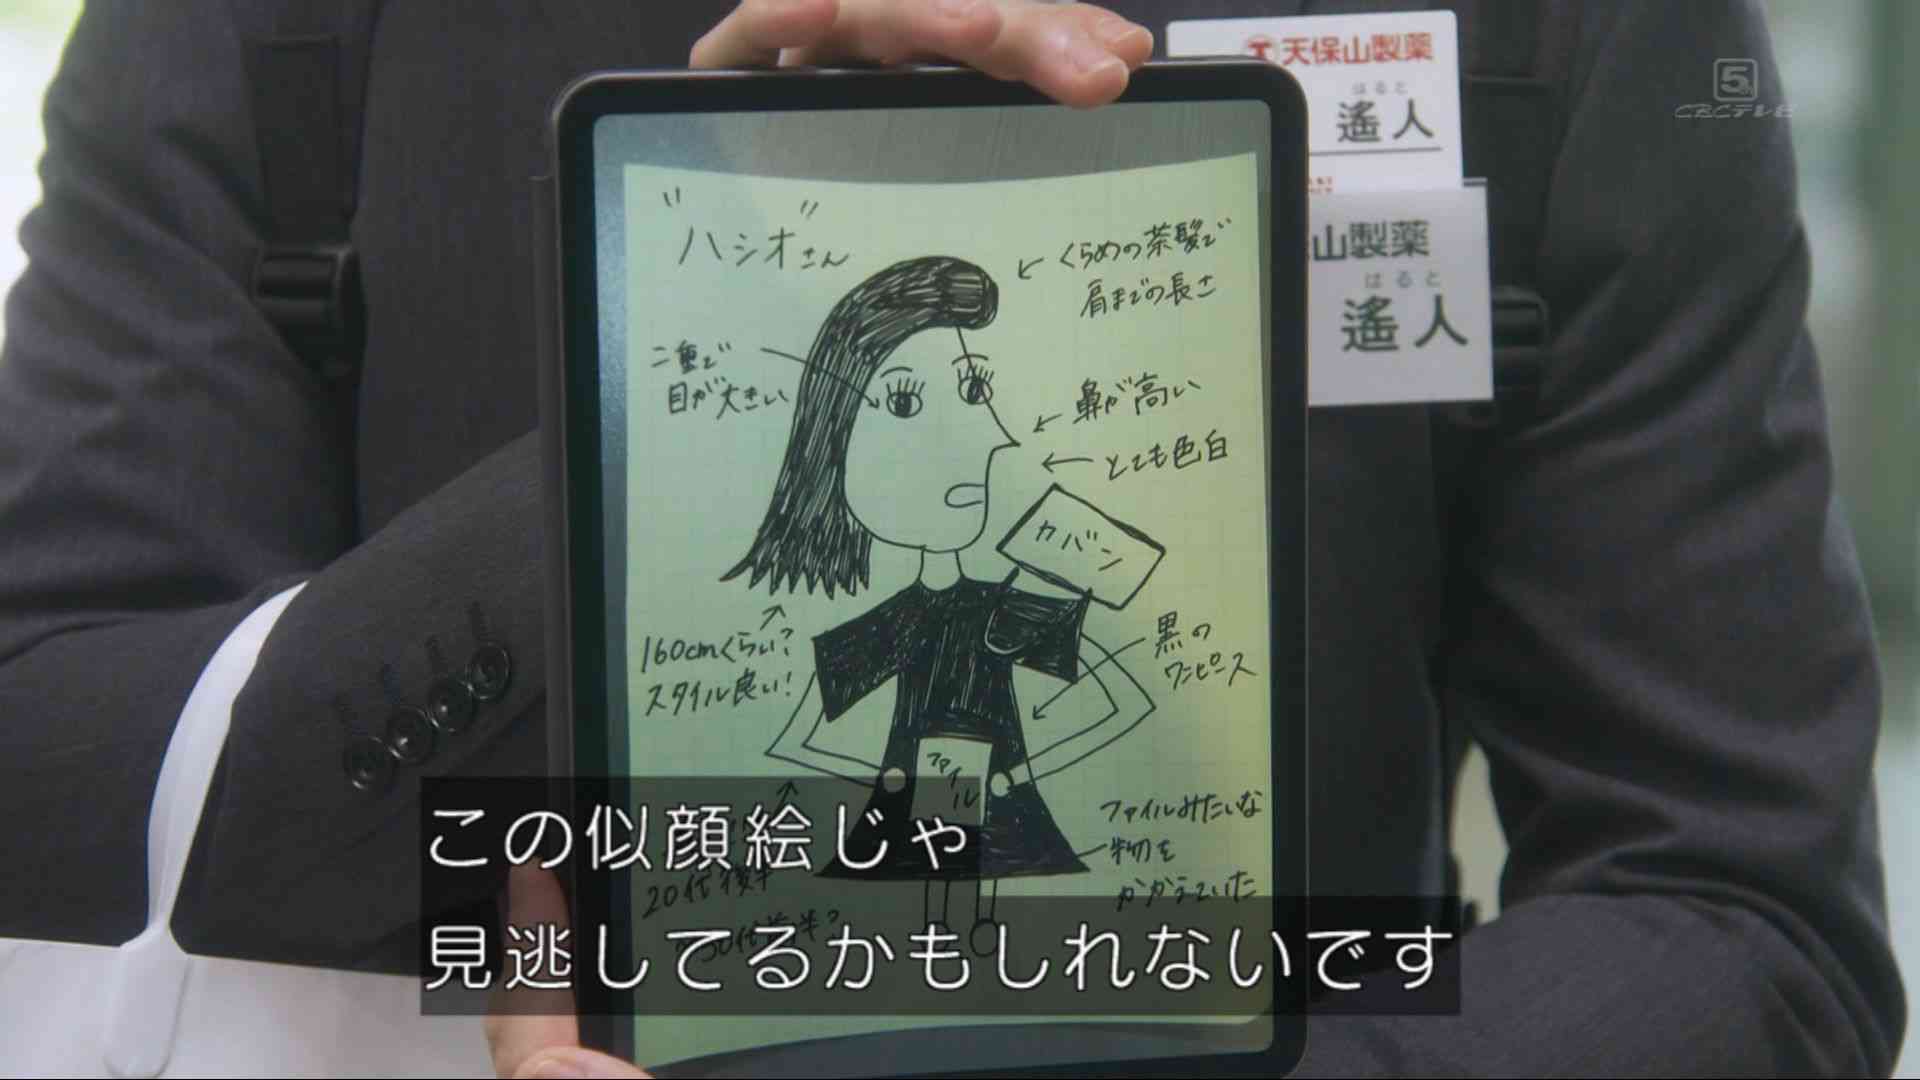 天保山製薬
はると
遙人
5
CBCテレビ
山製薬
はると
遙人
"ハシオ"さん
くらめの茶髪で
肩までの長さ
二重で
目が大きい
鼻が高い
とても色白
カバン
160cmくらい?
スタイル良い!
黒の
ワンピース
ファイル
ファイルみたいな
物を
かかえていた
20代後半
この似顔絵じゃ
見逃してるかもしれないです